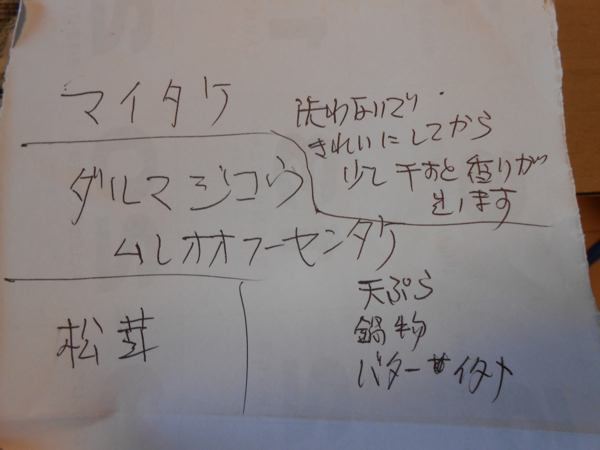 マイタケ
洗わないで
きれいにしてから
少し干すと香りが
出ます
ダルマジコウ
ムレオオフーセンタケ
松茸
天ぷら
鍋物
バターイタメ